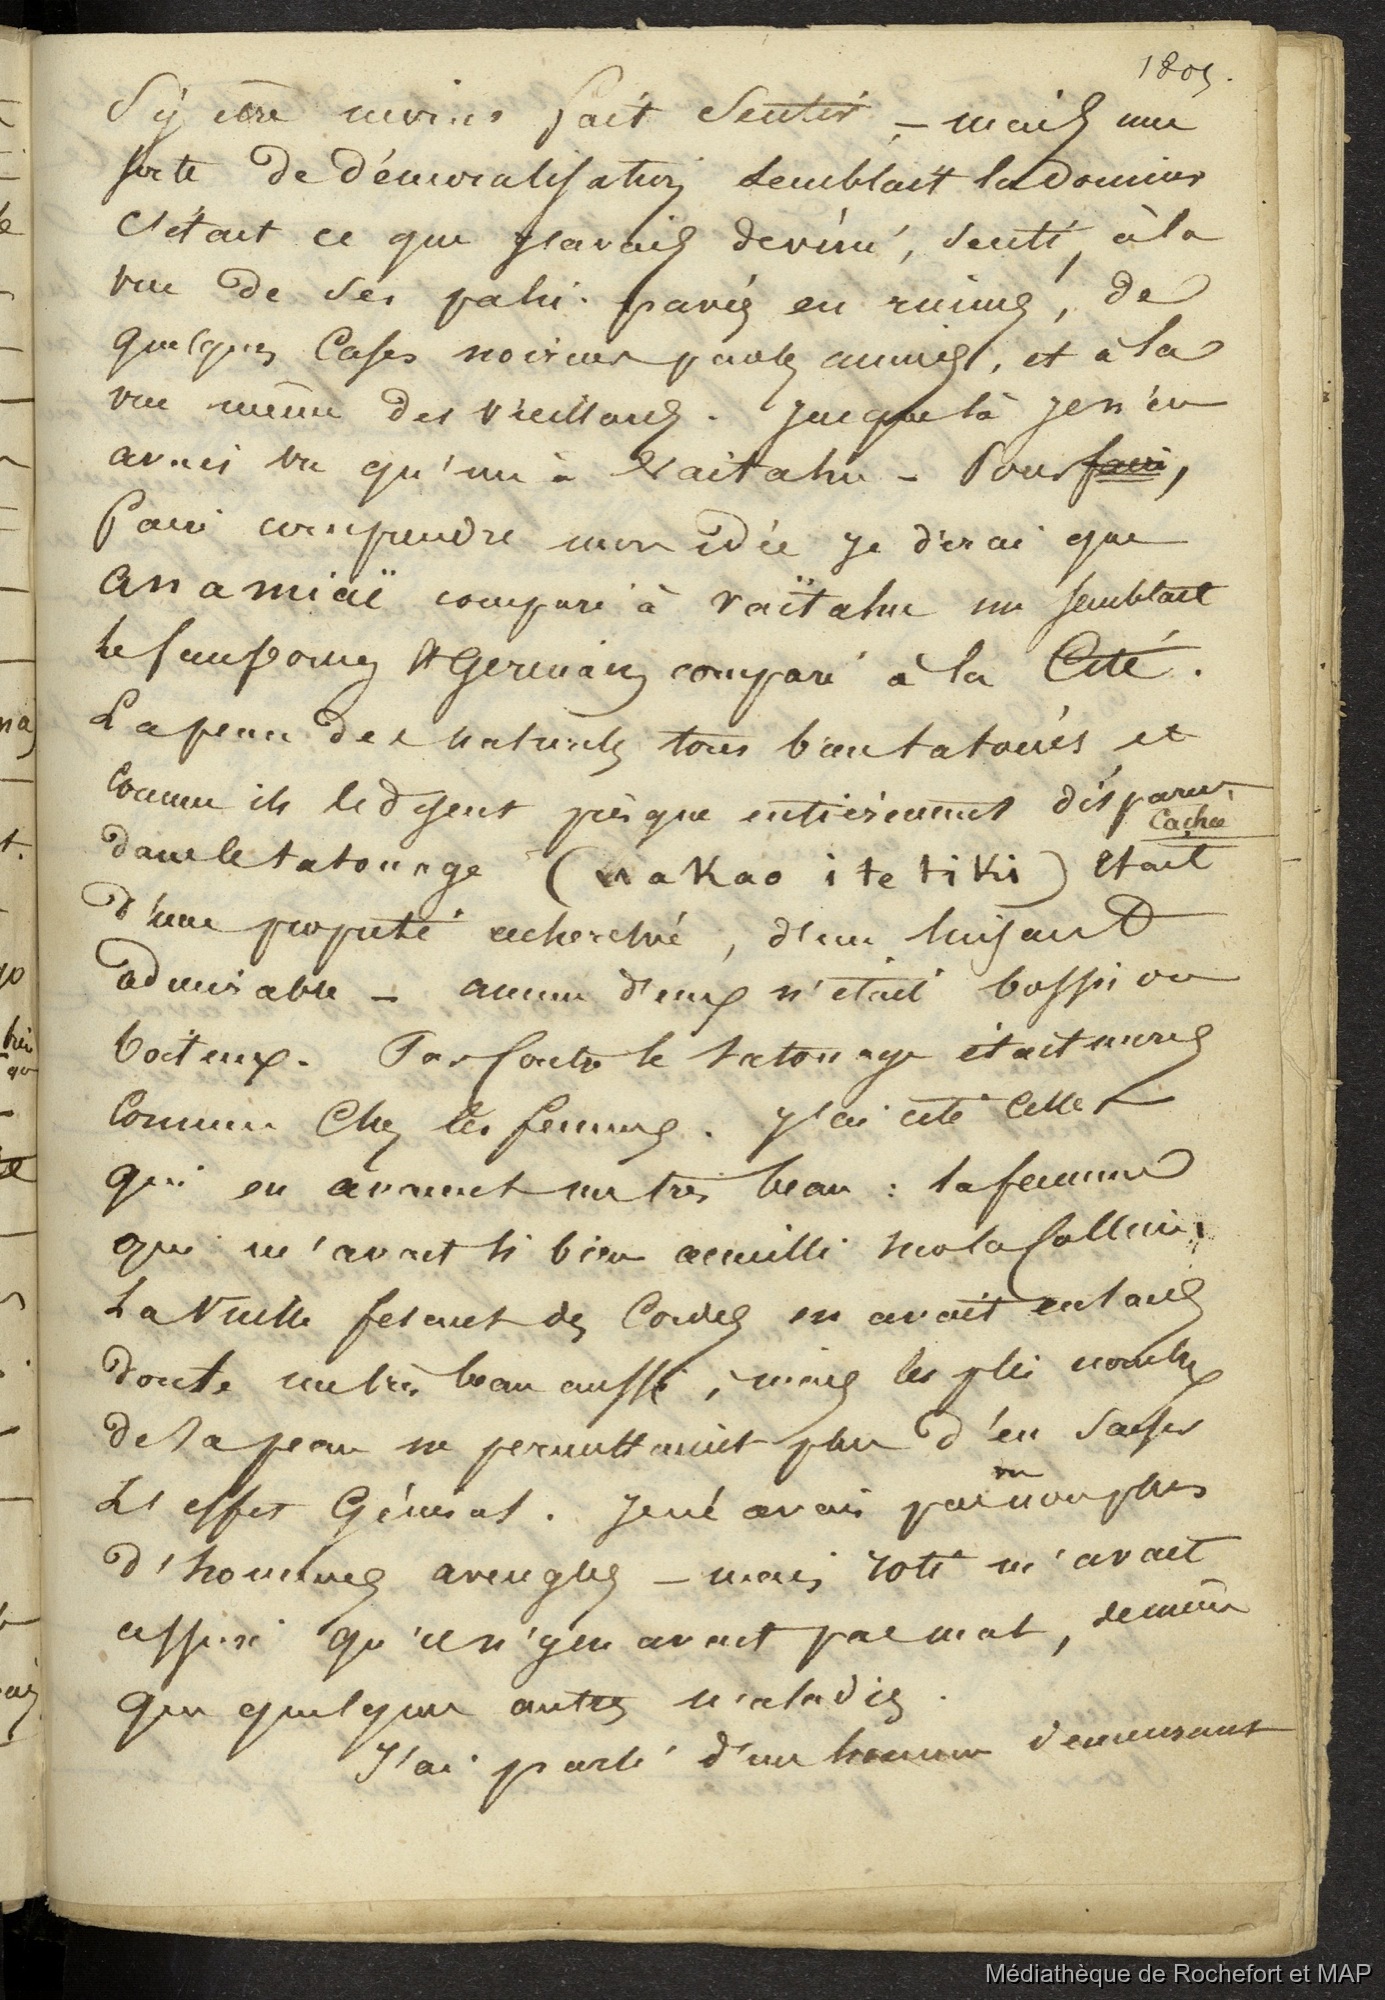 1805.
S'y être moins fait sentir – mais une
sorte de démoralisation semblait la dominer
C'était ce que j'avais deviné, senti, à la
vue de ses pahi-pavés en ruines, de
quelques Cases noircies par les années, et à la
vue même des vieillards. Jusque là je n'en
avais vu qu'un à Vaitahu – Pour faire,
faire comprendre mon idée je dirai que
Anamiaï comparé à Vaïtahu me semblait
le faubourg St Germain comparé à la Cité.
La peau des naturels tous bien tatoués et
comme ils le disent presque entièrement disparue,
cachée
dans le tatouage (nakao i te tiki) était
d'une propreté recherchée, d'un luisant
admirable – aucun d'eux n'était bossu ou
boiteux. Par contre le tatouage était moins
commun chez les femmes. J'ai cité celles
qui en avaient un très beau : la femme
qui m'avait si bien accueilli
La vieille fesant des Cordes en avait eu sans
doute un très beau aussi, mais les plis nombreux
de la peau ne permettaient plus d'en saisir
L'effet Général. Je n'é avais pas vu non plus
d'hommes aveugles – mais Toti m'avait
assuré qu'il n'y en avait pas mal, de même
que quelques autres maladies.
J'ai parlé d'un homme demeurant
Médiathèque de Rochefort et MAP